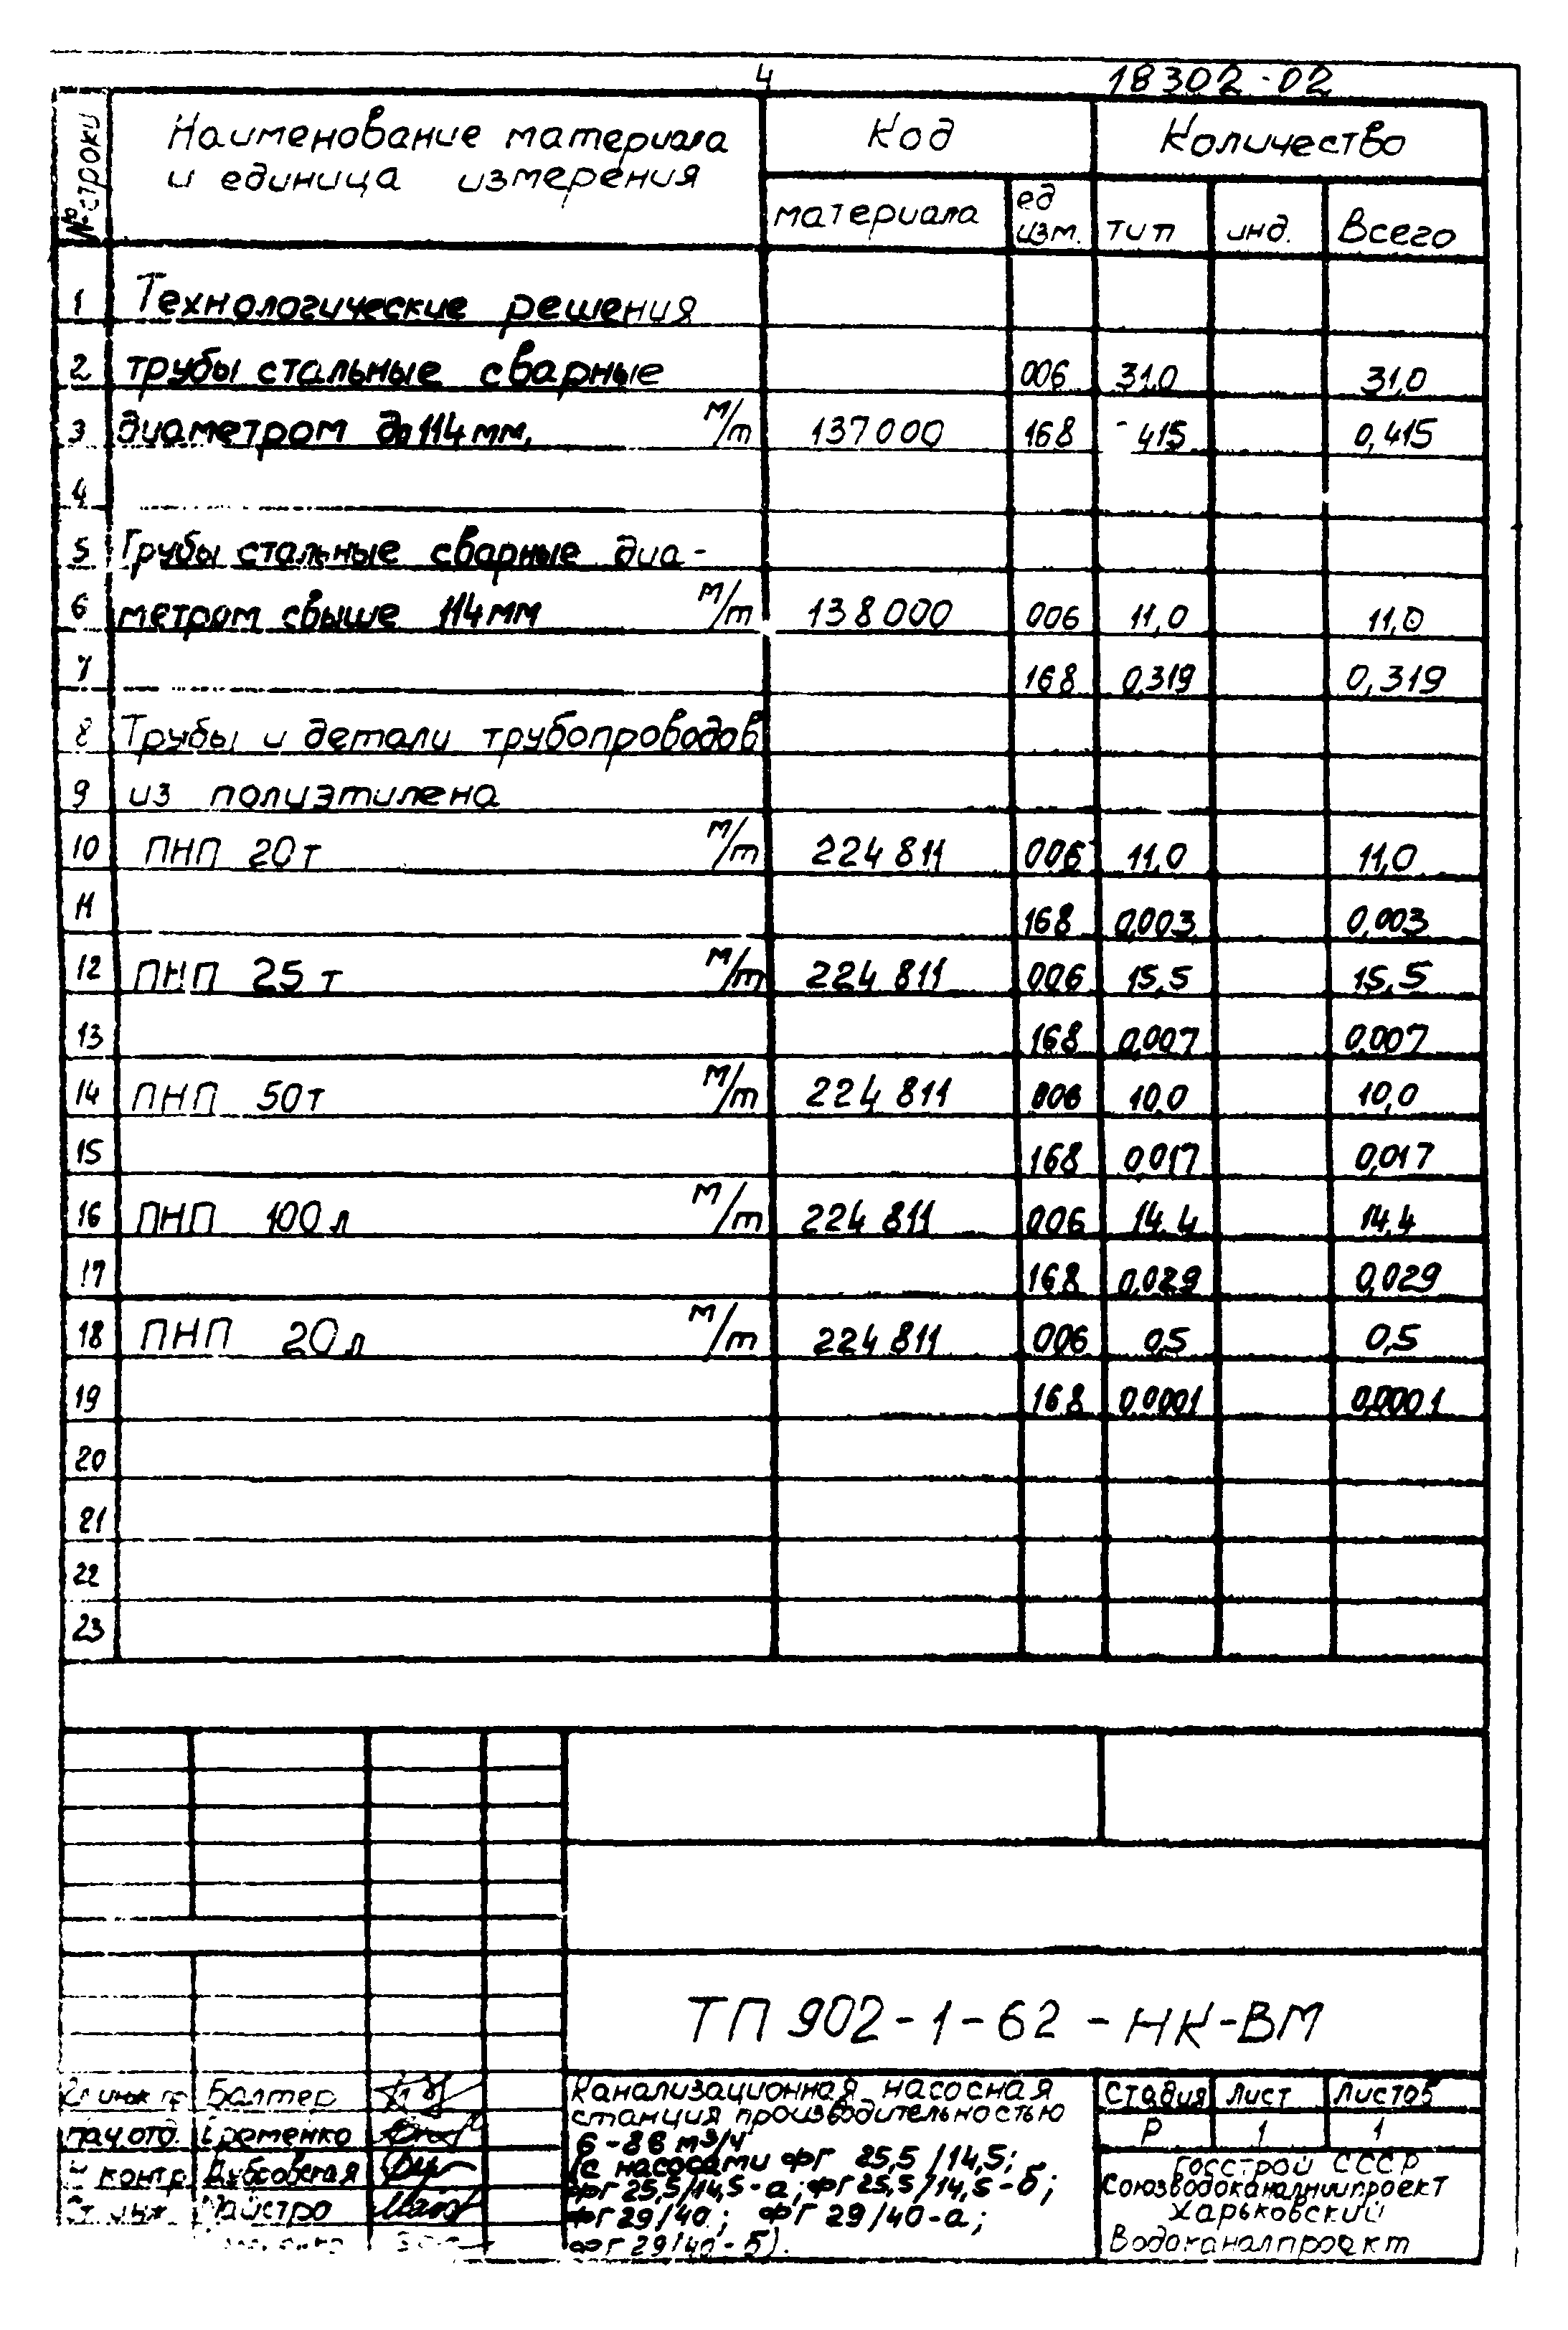 4 18302-02
№ строки Наименование материала и единица измерения Код Количество
материала ед изм. тип инд. Всего
1 Технологические решения
2 трубы стальные сварные 006 31,0 31,0
3 диаметром до 114 мм, м/т 137000 168 415 0,415
4
5 Трубы стальные сварные диа-
6 метром свыше 114 мм м/т 138000 006 11,0 11,0
7 168 0,319 0,319
8 Трубы и детали трубопроводов
9 из полиэтилена
10 ПНП 20т м/т 224 811 006 11,0 11,0
11 168 0,003 0,003
12 ПНП 25 т м/т 224 811 006 15,5 15,5
13 168 0,007 0,007
14 ПНП 50т м/т 224 811 006 10,0 10,0
15 168 0,017 0,017
16 ПНП 100 л м/т 224 811 006 14,4 14,4
17 168 0,029 0,029
18 ПНП 20 л м/т 224 811 006 0,5 0,5
19 168 0,0001 0,0001
20
21
22
23
ТП 902-1-62-НК-ВМ
Гл инж пр Балтер
нач. отд. Еременко
Н контр Дубовская
Ст. инж Майстро
Канализационная насосная
станция производительностью
6-86 м³/ч
(с насосами фг 25,5/14,5;
фг 25,5/14,5-а; фг 25,5/14,5-б;
фг 29/40; фг 29/40-а;
фг 29/40-б).
Стадия Лист Листов
Р 1 1
Госстрой СССР
Союзводоканалниипроект
Харьковский
Водоканалпроект